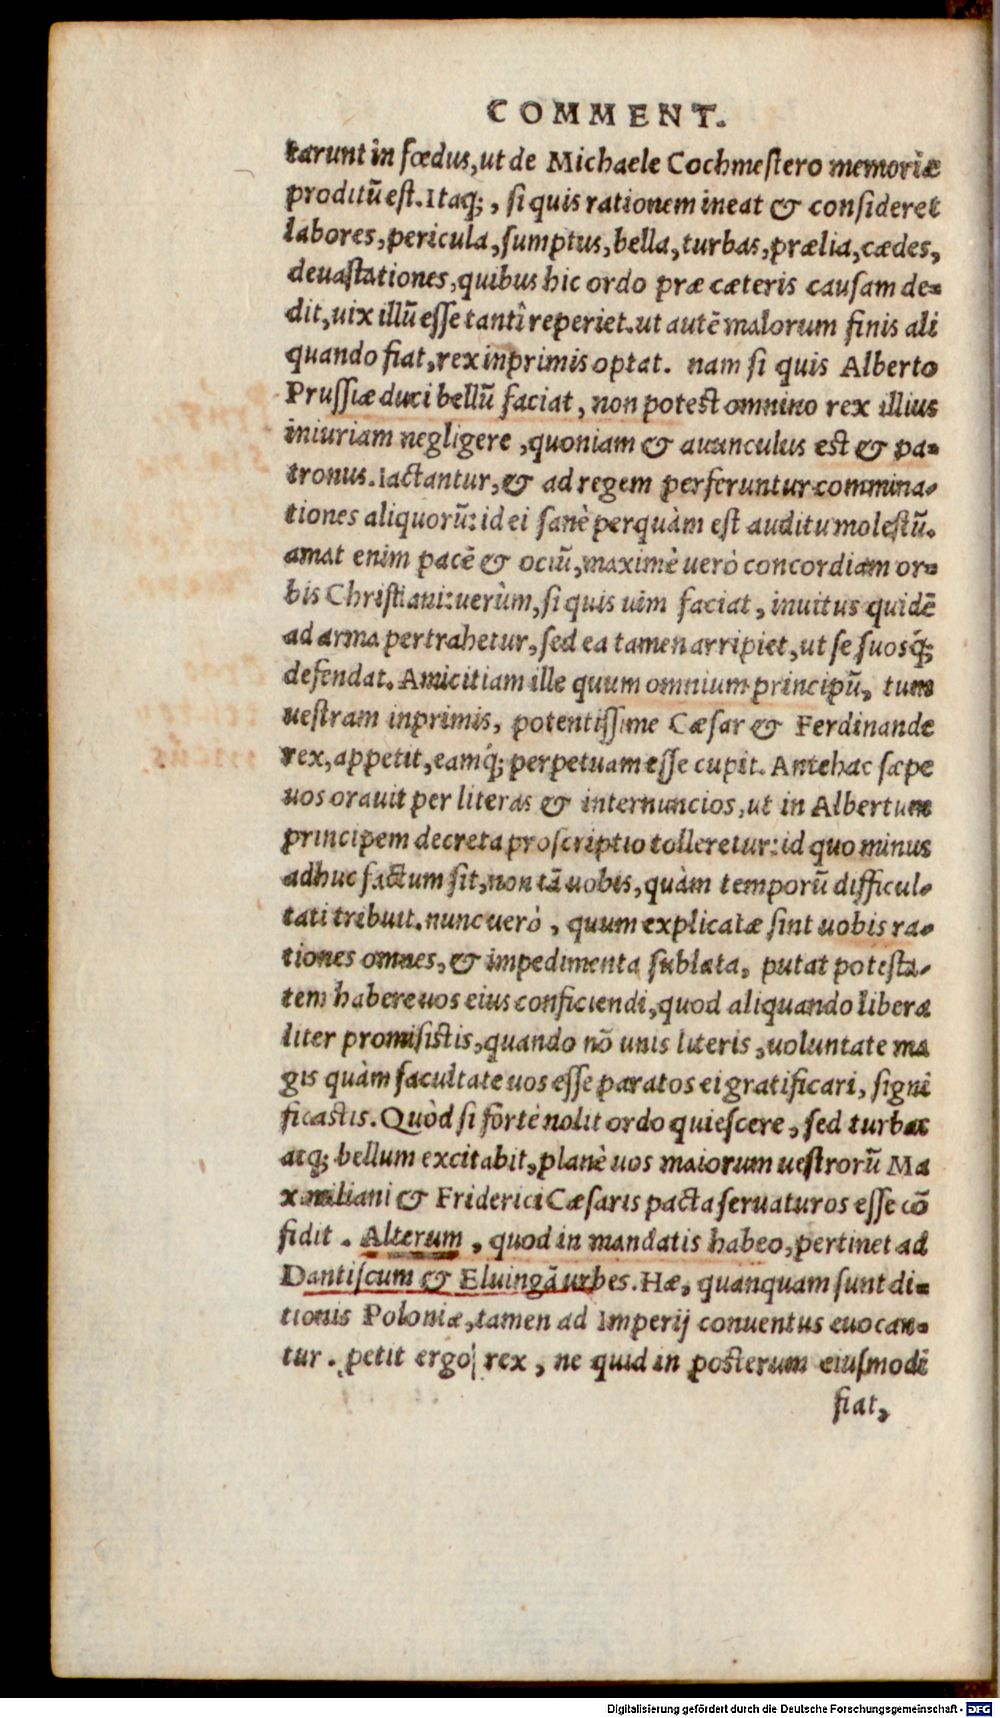 COMMENT.
tarunt in fœdus, ut de Michaele Cochmestero memoriæ
proditũ est. Itaq;, si quis rationem ineat & consideret
labores, pericula, sumptus, bella, turbas, prælia, cædes,
deuastationes, quibus hic ordo præ cæteris causam de-
dit, uix illũ esse tanti reperiet. ut autẽ malorum finis ali
quando fiat, rex inprimis optat. nam si quis Alberto
Prussiæ duci bellũ faciat, non potest omnino rex illius
iniuriam negligere, quoniam & auunculus est & pa-
tronus. Iactantur, & ad regem perferuntur commina-
tiones aliquorũ: id ei sanè perquàm est auditu molestũ.
amat enim pacẽ & ociũ, maximè uerò concordiam or-
bis Christiani: uerùm, si quis uim faciat, inuitus quidẽ
ad arma pertrahetur, sed ea tamen arripiet, ut se suosq́;
defendat. Amicitiam ille quum omnium principũ, tum
uestram inprimis, potentissime Cæsar & Ferdinande
rex, appetit, eamq́; perpetuam esse cupit. Antehac sæpe
uos orauit per literas & internuncios, ut in Albertum
principem decreta proscriptio tolleretur: id quo minus
adhuc factum sit, non tã uobis, quàm temporũ difficul-
tati tribuit. nunc uerò, quum explicatæ sint uobis ra-
tiones omnes, & impedimenta sublata, putat potesta-
tem habere uos eius conficiendi, quod aliquando libera
liter promisistis, quando nõ unis literis, uoluntate ma
gis quàm facultate uos esse paratos ei gratificari, signi
ficastis. Quòd si fortè nolit ordo quiescere, sed turbas
atq; bellum excitabit, planè uos maiorum uestrorũ Ma
ximiliani & Friderici Cæsaris pacta seruaturos esse cõ
fidit. Alterum, quod in mandatis habeo, pertinet ad
Dantiscum & Eluingã urbes. Hæ, quanquam sunt di-
tionis Poloniæ, tamen ad Imperij conuentus euocan-
tur. petit ergo rex, ne quid in posterum eiusmodi
fiat,
Digitalisierung gefördert durch die Deutsche Forschungsgemeinschaft - DFG